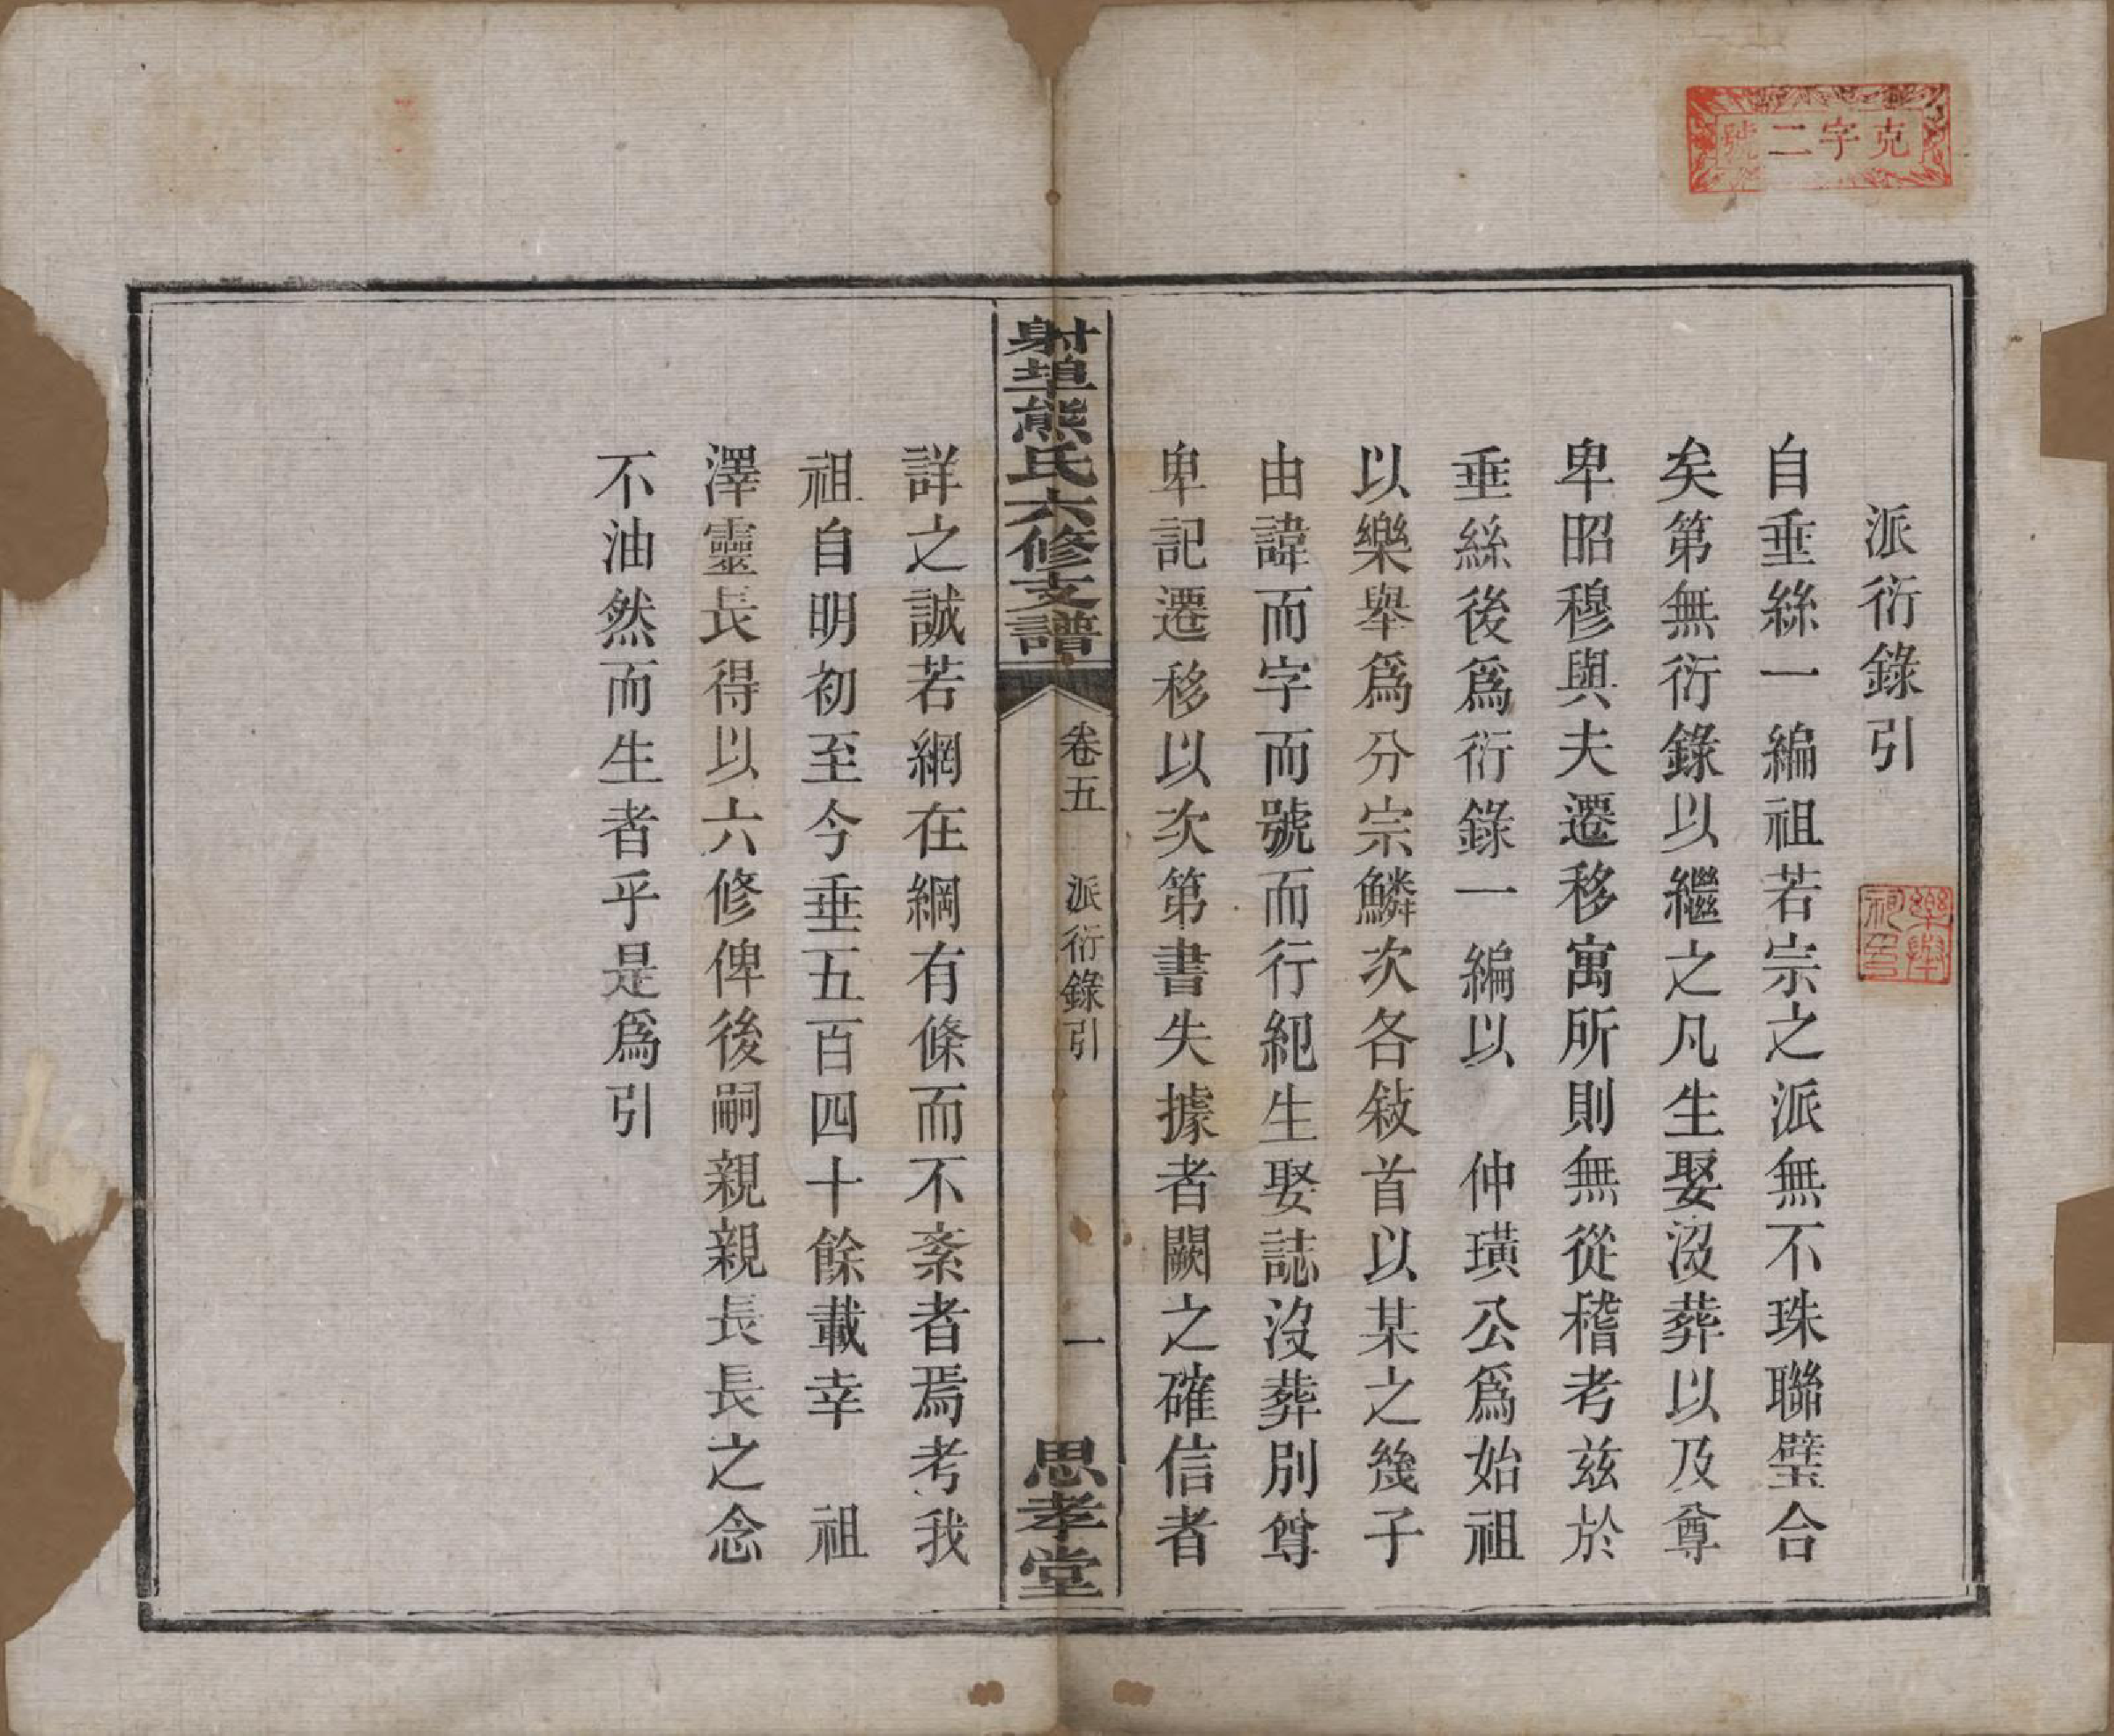 克字二號
派衍錄引
自垂絲一編祖若宗之派無不珠聯璧合
矣第無衍錄以繼之凡生娶沒葬以及尊
卑昭穆與夫遷移寓所則無從稽考茲於
垂絲後爲衍錄一編以 仲璜公爲始祖
以樂舉爲分宗鱗次各敍首以某之幾子
由諱而字而號而行紀生娶誌沒葬別尊
卑記遷移以次第書失據者闕之確信者
射埠熊氏六修支譜
卷五 派衍錄引 一
思孝堂
詳之誠若網在綱有條而不紊者焉考我
祖自明初至今垂五百四十餘載幸 祖
澤靈長得以六修俾後嗣親親長長之念
不油然而生者乎是爲引